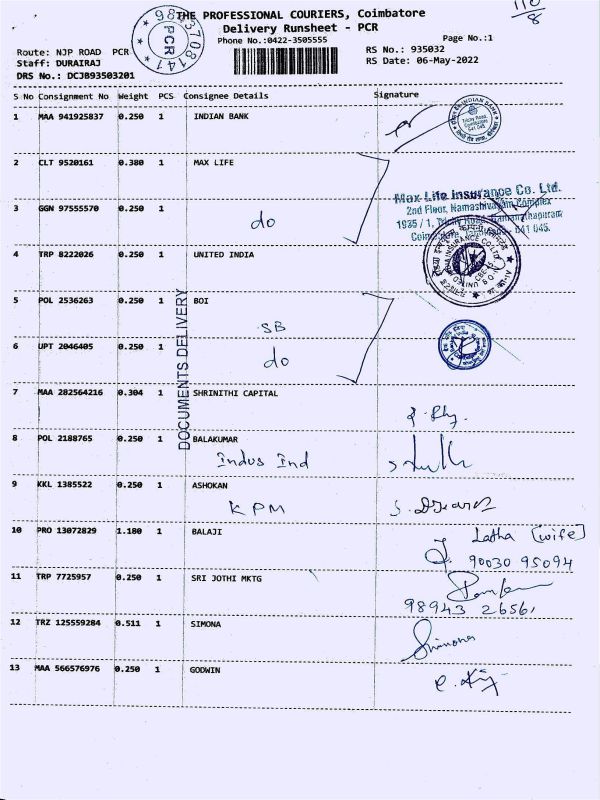 THE PROFESSIONAL COURIERS, Coimbatore
110/8
Delivery Runsheet - PCR
Phone No.:0422-3505555
Page No.:1
Route: NJP ROAD PCR
Staff: DURAIRAJ
DRS No.: DCJB93503201
RS No.: 935032
RS Date: 06-May-2022
9843708141
PCR
S No Consignment No Weight PCS Consignee Details Signature
1 MAA 941925837 0.250 1 INDIAN BANK
INDIAN BANK
Trichy Road
Coimbatore
641 045
2 CLT 9520161 0.380 1 MAX LIFE
Max Life Insurance Co. Ltd.
2nd Floor, Namashivayam Complex
1935 / 1, Trichy Road, Ramanathapuram
Coimbatore, Tamilnadu - 641 045.
3 GGN 97555570 0.250 1
do
4 TRP 8222026 0.250 1 UNITED INDIA
5 POL 2536263 0.250 1 BOI
SB
6 UPT 2046405 0.250 1
do
DOCUMENTS DELIVERY
7 MAA 282564216 0.304 1 SHRINITHI CAPITAL
8 POL 2188765 0.250 1 BALAKUMAR
Indus Ind
9 KKL 1385522 0.250 1 ASHOKAN
KPM
10 PRO 13072829 1.180 1 BALAJI
Latha [wife]
90030 95094
11 TRP 7725957 0.250 1 SRI JOTHI MKTG
98943 26561
12 TRZ 125559284 0.511 1 SIMONA
Simona
13 MAA 566576976 0.250 1 GODWIN